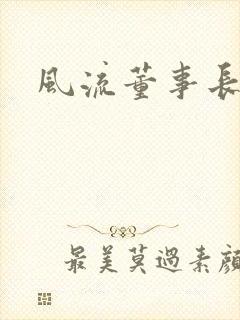 風流董事長
最美莫過素顏